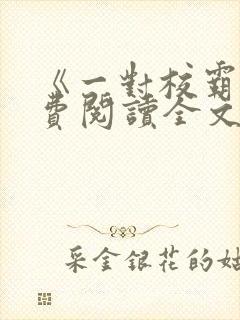 《一對校霸
費閱讀全文
采金銀花的姑